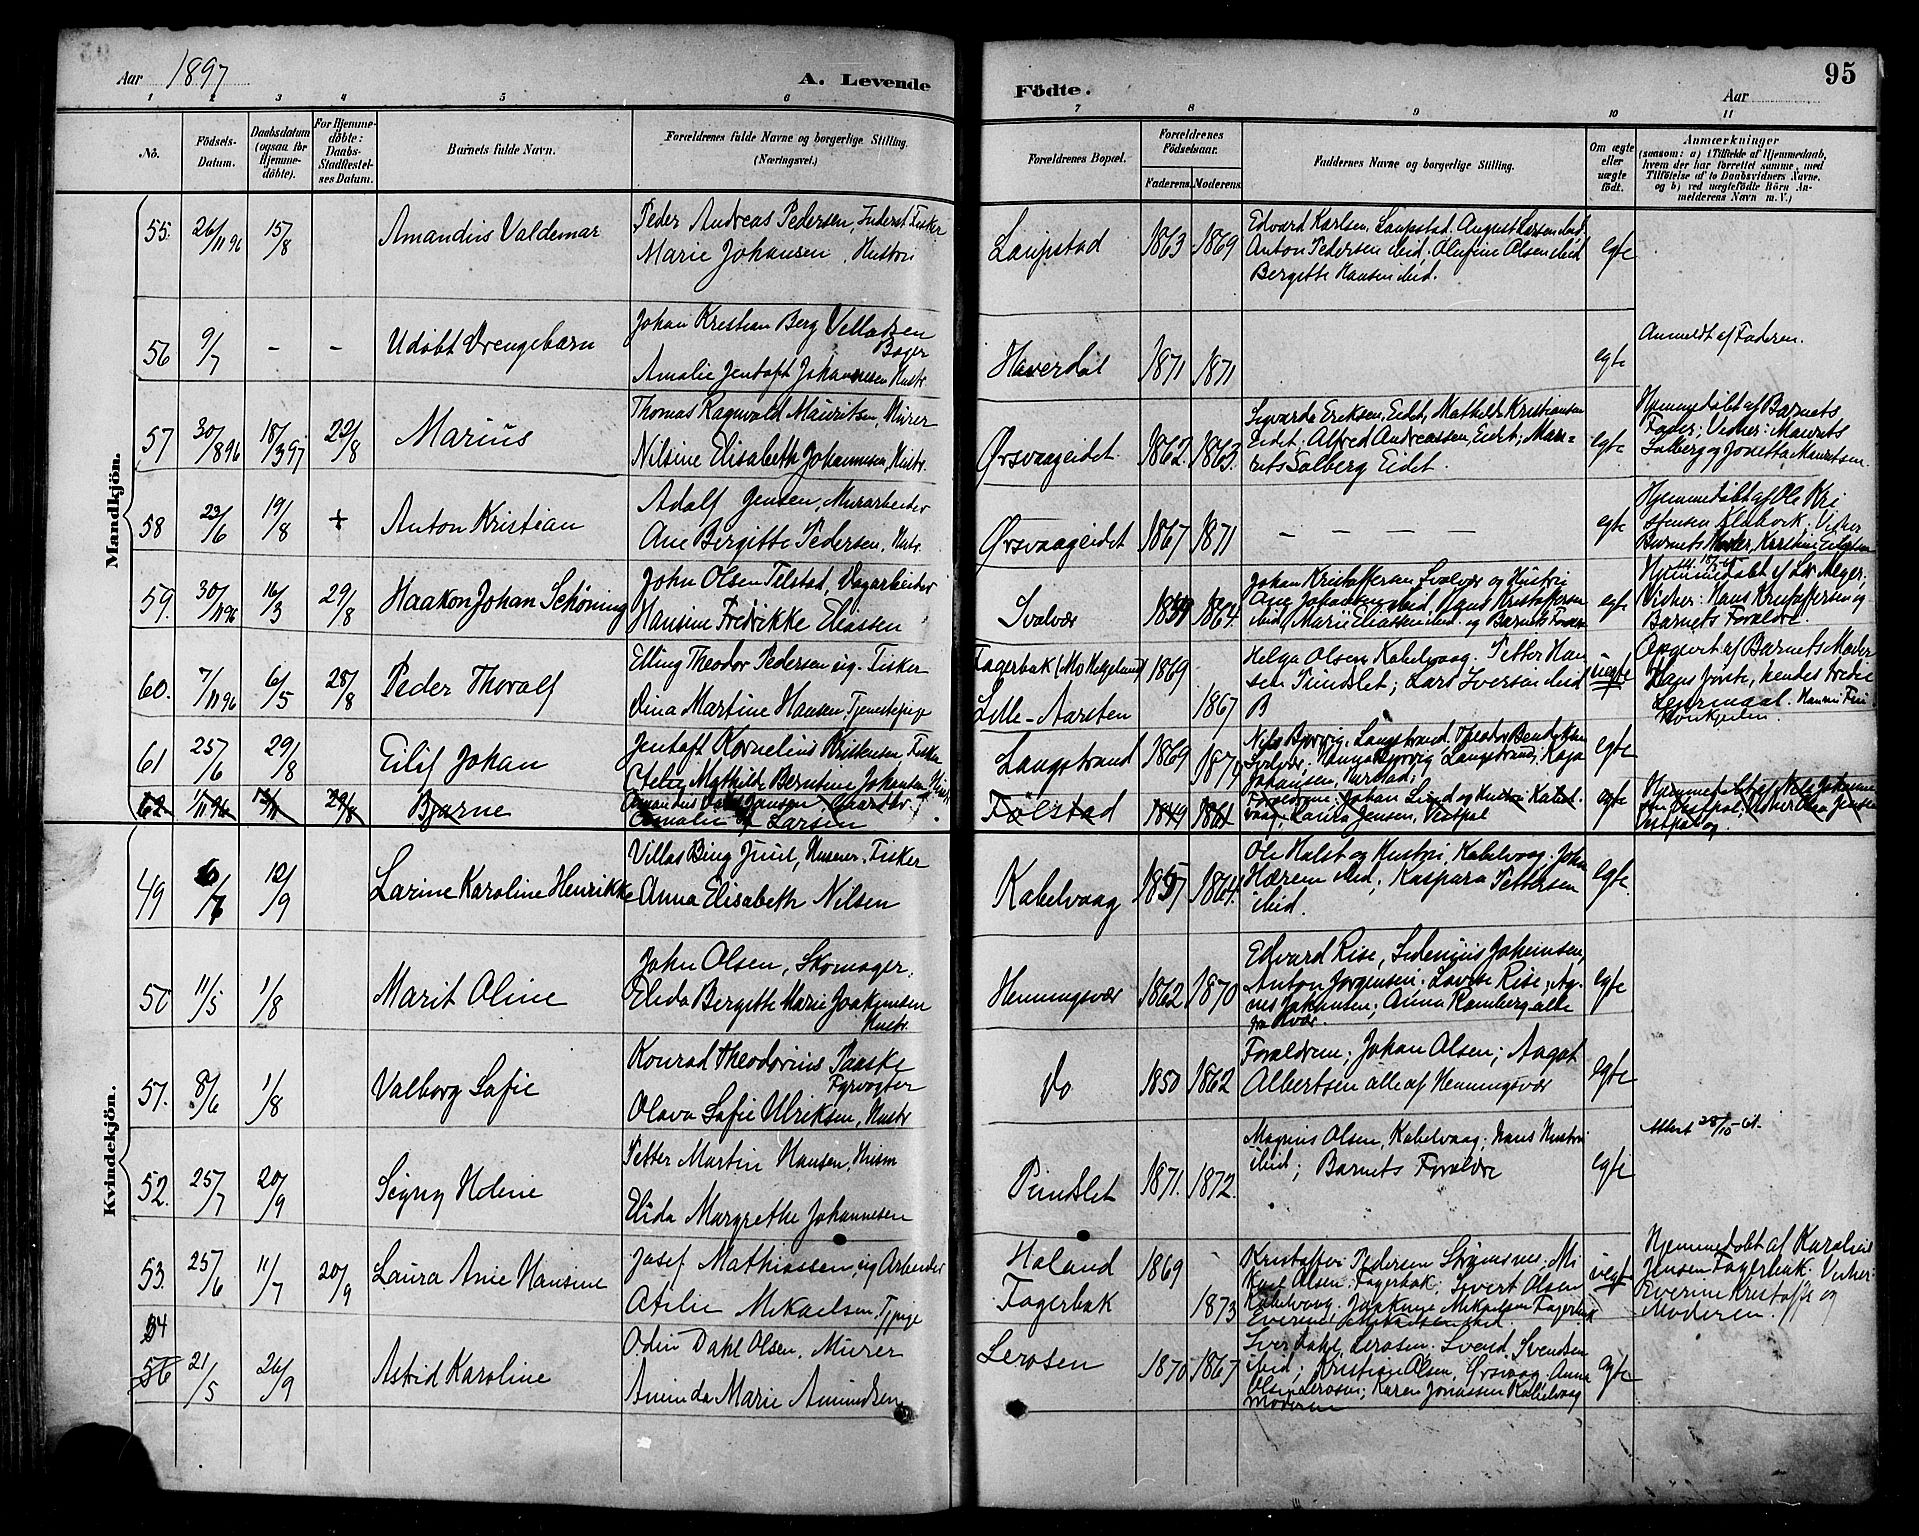 Aar 1897
A. Levende
Födte.
Aar
95
1 2 3 4 5 6 7 8 9 10 11
No.
Födsels-
Datum.
Daabsdatum
(ogsaa for
Hjemme-
döbte).
For Hjemme-
döbte:
Daabs-
Stadfæstel-
ses Datum.
Barnets fulde Navn.
Forældrenes fulde Navne og borgerlige Stilling.
(Næringsvei.)
Forældrenes Bopæl.
Forældrenes
Födselsaar.
Faderens. Moderens.
Faddernes Navne og borgerlige Stilling.
Om ægte
eller
uægte
födt.
Anmærkninger
(saasom: a) i Tilfælde af Hjemmedaab,
hvem der har forrettet samme, med
Tilföielse af to Daabsvidners Navne,
og b) ved uægtefödte Börn An-
melderens Navn m. V.)
Mandkjön.
55. 26/11 96 15/8 Amandus Valdemar
Peder Andreas Pedersen, Inderst Fisker
Marie Johansen, Hustru
Laupstad 1863 1869
Edvard Karlsen, Laupstad. August Larsen ibid.
Anton Pedersen ibid; Olufine Olsen ibid
Bergitte Hansen ibid.
egte
56 9/7 - - Udøbt Drengebarn
Johan Kristian Berg Villadsen
Bager
Amalie Jentoft Johannesen Hustr.
Haverdal 1871 1871
egte
Anmeldt af Faderen.
57 30/8 96 18/3 97 22/8 Marius
Thomas Ragnvald Mauritsen, Murer
Nilsine Elisabeth Johannesen, Hustr.
Ørsvaageidet 1862. 1863.
Sivarda Eriksen, Eidet, Mathilde Kristiansen
Eidet; Alfred Andreassen, Eidet; Mau=
rits Solberg Eidet.
egte
Hjemmedøbt af Barnets
Fader; Vidner: Maurits
Solberg og Josetta Mauritsen.
58 23/6 19/8 + Anton Kristian
Adolf Jensen, Murarbeider
Ane Bergitte Pedersen, Hustr.
Ørsvaageidet 1867 1871 - - - -
egte
Hjemmedøbt af Ole Kri
stensen Klabvik. Vidner
Barnets Moder, Kristine
59. 30/11 96 16/3 29/8 Haakon Johan Schöning
John Olsen Telstad, Dagarbeider
Hansine Fredrikke Eliassen
Svolvær 1859 1864.
Johan Kristoffersen Svolvær og Hustru
Ane Johansen ibid, Hans Kristoffersen
ibid, Marie Eliassen ibid. og Barnets Foræld
egte
Hjemmedøbt af Meyer;
Vidner: Hans Kristoffersen og
Barnets Forældre.
60. 7/11 96 6/5 28/8 Peder Thoralf
Elling Theodor Pedersen ug. Fisker
Dina Martine Hansen, Tjenestepige
Fagerbak (Mo Helgeland) 1869
Lille-Aarsten 1867
Helga Olsen Kabelvaag. Petter Han
sen Pundslet; Lars Iversen ibid
B
uegte
Opgivet af Barnets Moder
Hans første, hendes tredie
Leiermaal.
61 25/6 29/8 Eilif Johan
Jentoft Kornelius Kristensen, Fisker
Otelie Mathilde Berntine Johansen, Hustr
Langstrand 1869 1874
Nils Bjørvig, Langstrand, Theodor Bendiksen
Svolvær. Hanga Bjørvig Langstrand, Kaja
Johansen,
egte
62 1/11 96 29/8 Bjarne
Amandus Jansen Gaardbr.
Amalie Larsen
Følstad 1849 1861
Forældrene: Johan Lind og Hustru Kabel
vaag; Laura Jensen, Vestpol
egte
Kvindekjön.
49 12/9 Larine Karoline Henrikke
Villas Bing Juul, Huseier. Fisker
Anna Elisabeth Nilsen
Kabelvaag 1857 1864.
Ole Holst og Hustru, Kabelvaag. Johan
Hærem ibid, Kaspara Pettersen
ibid.
egte
50 11/5 1/8 Marit Oline
John Olsen, Skomager.
Elida Bergitte Marie Joakimsen
Hustr.
Henningsvær 1862 1870
Edvard Rise, Sidenius Joakimsen,
Anton Jørgensen. Lovise Rise, Ag-
nes Johansen; Anna Ramberg alle
fra Hvær.
egte
51. 8/6 1/8 Valborg Sofie
Konrad Theodorius Paaske
Fyrvogter
Olava Sofie Ulriksen, Hustr
Do 1850 1862
Forældrene; Johan Olsen; Aagot
Albertsen alle af Henningsvær
egte
52. 25/7 20/9 Signy Helene
Petter Martin Hansen, Husm
Elida Margrethe Johannesen
Pundslet 1871. 1872.
Magnus Olsen, Kabelvaag. Hans Hustru
ibid; Barnets Forældre
egte
Attest 28/10-61.
53. 25/6 11/7 20/9 Laura Anie Hansine
Josef Mathiassen, ug Arbeider
Otilie Mikaelsen Tj.pige
Holand 1869
Fagerbak 1873
Kristoffer Pedersen Mi
kael Olsen. Fagerbak, Sivert Olsen
Kabelvaag. Mikaelsen Fagerbak
uegte
Hjemmedøbt af Karoline
Jensen Fagerbak. Vidner
Everine Kristoffs og
Moderen.
54
56 21/5 26/9 Astrid Karoline
Odin Dahl Olsen. Murer
Aminda Marie Amundsen
Lerosen 1870 1867
Iver Dahl, Lerosen. Svend Svendsen
ibid; Kristian Olsen, Ørsvaag. Anna
Olsen Lerosen; Karen Jonassen Kabelvaag
Moderen
egte